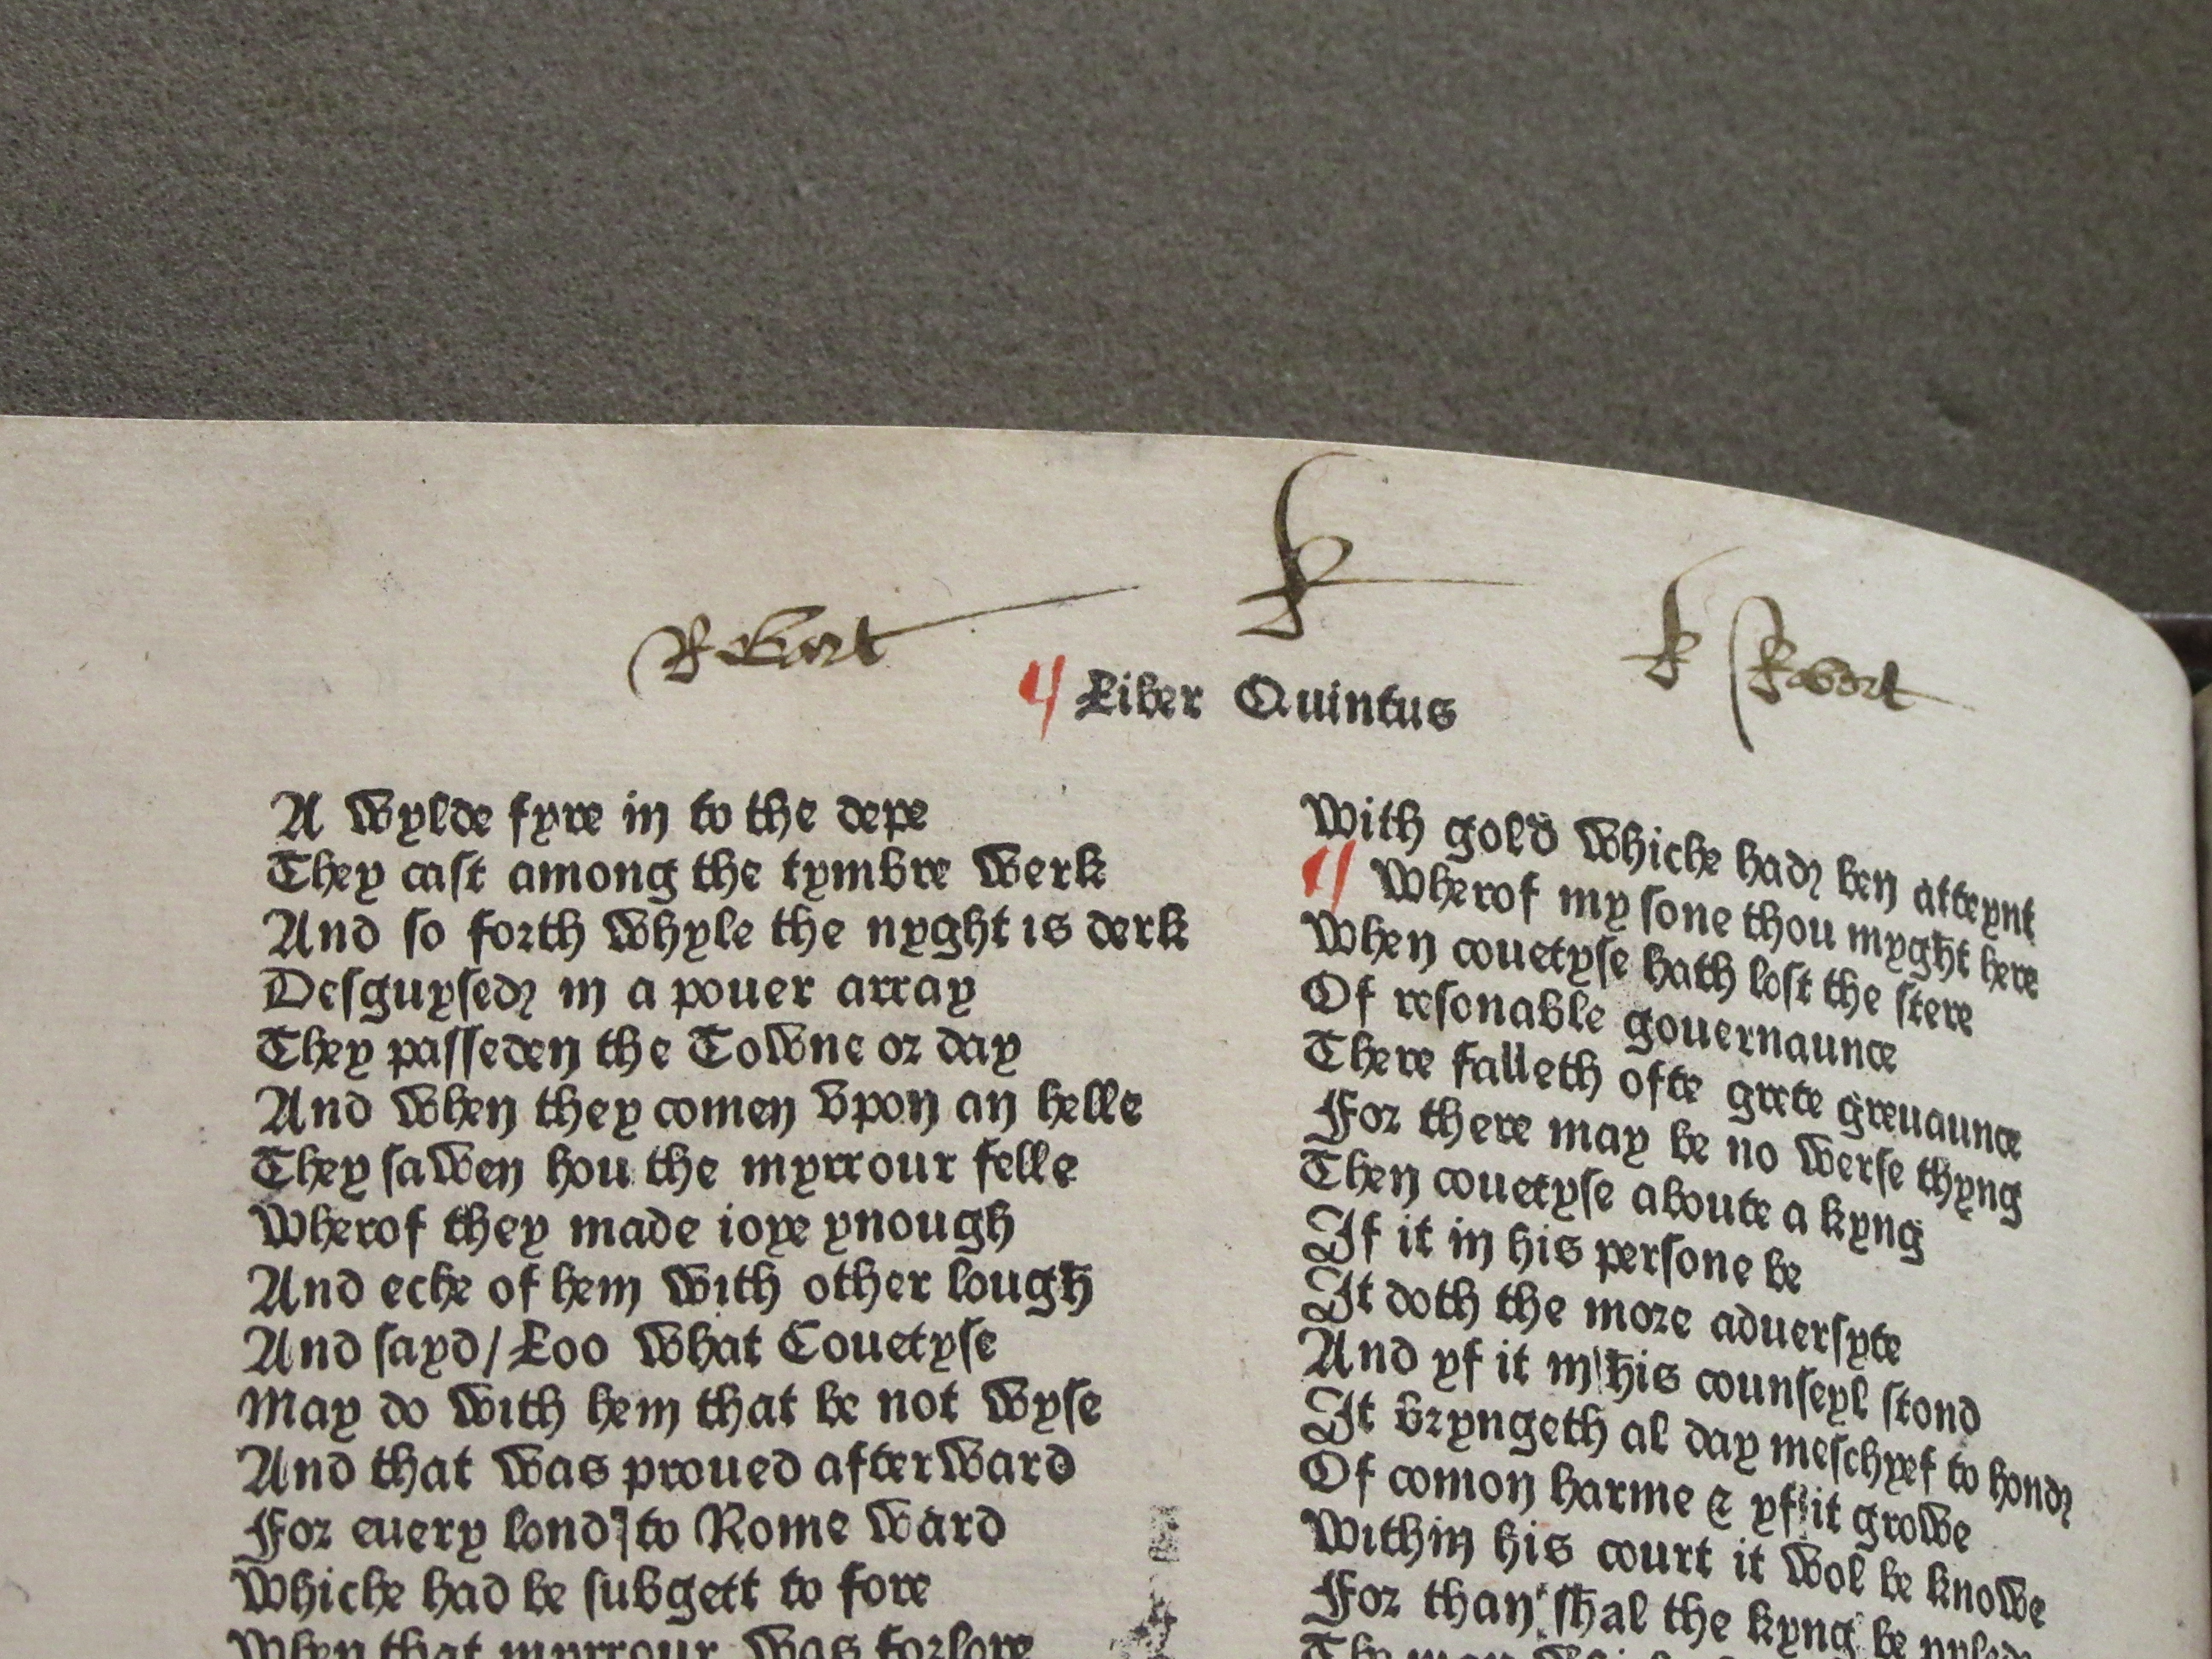 Robart
Robort
¶ Liber Quintus
A wylde fyre in to the depe
They cast among the tymbre werk
And so forth whyle the nyght is derk
Desguysed in a pouer array
They passeden the Towne or day
And when they comen vpon an helle
They sawen hou the myrrour felle
Wherof they made ioye ynough
And eche of hem with other lough
And sayd / Loo what Couetyse
May do with hem that be not wyse
And that was proued afterward
For euery lond to Rome ward
Whiche had be subgett to fore
When that myrrour was forlore
With gold whiche had ben atteynt
¶ Wherof my sone thou myght here
When couetyse hath lost the stere
Of resonable gouernaunce
There falleth ofte grete greuaunce
For there may be no werse thyng
Then couetyse aboute a kyng
If it in his persone be
It doth the more aduersyte
And yf it in his counseyl stond
It bryngeth al day meschyef to hond
Of comon harme & yf it growe
Within his court it wol be knowe
For than shal the kyng be pyled